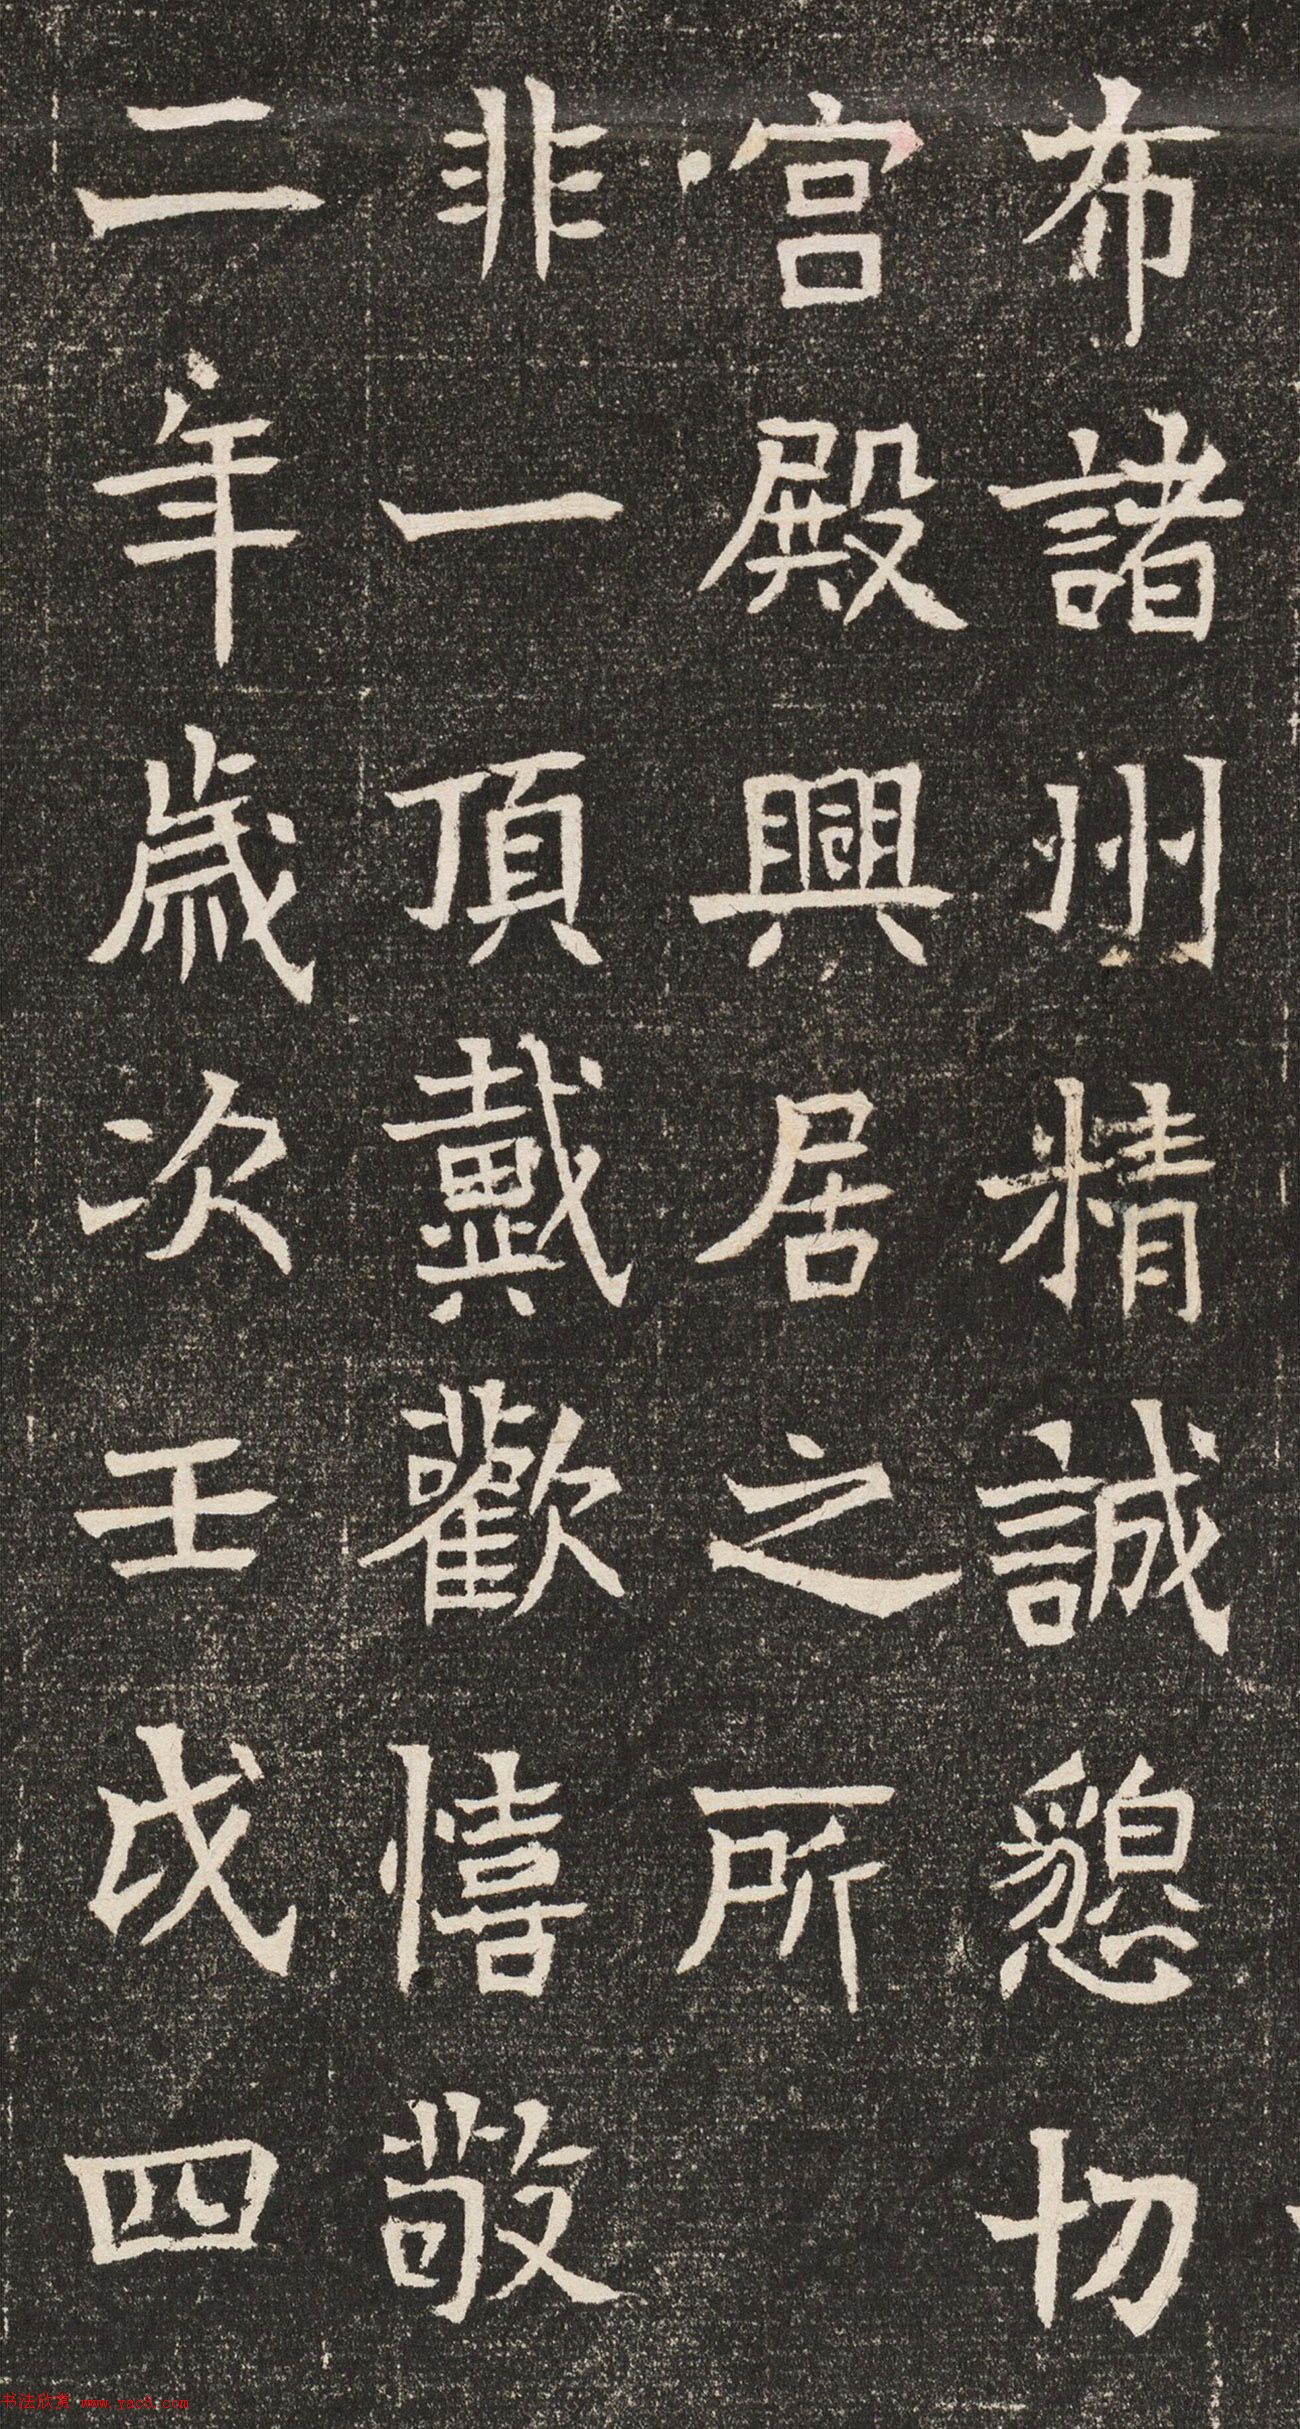 布諸州精誠懇切
宮殿興居之所
非一頂戴歡憘敬
二年歲次壬戌四
书法欣赏 www.yac8.com